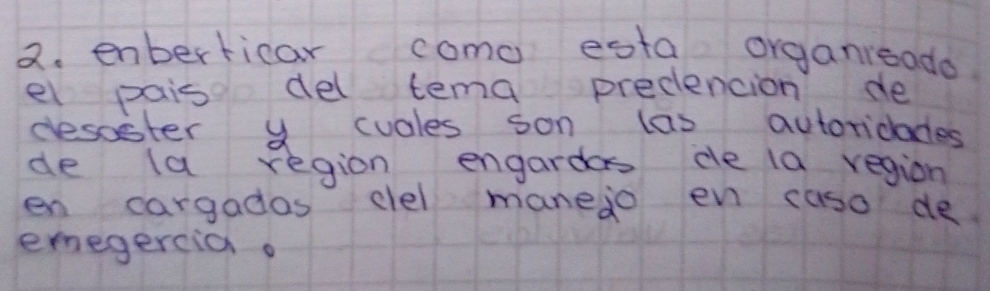 2. enberticar como esta organisado
el pais del tema predencion de
desaster y cuales son las autoridades
de la region engardas de la region
en cargadas del manejo en caso de
emegercia.